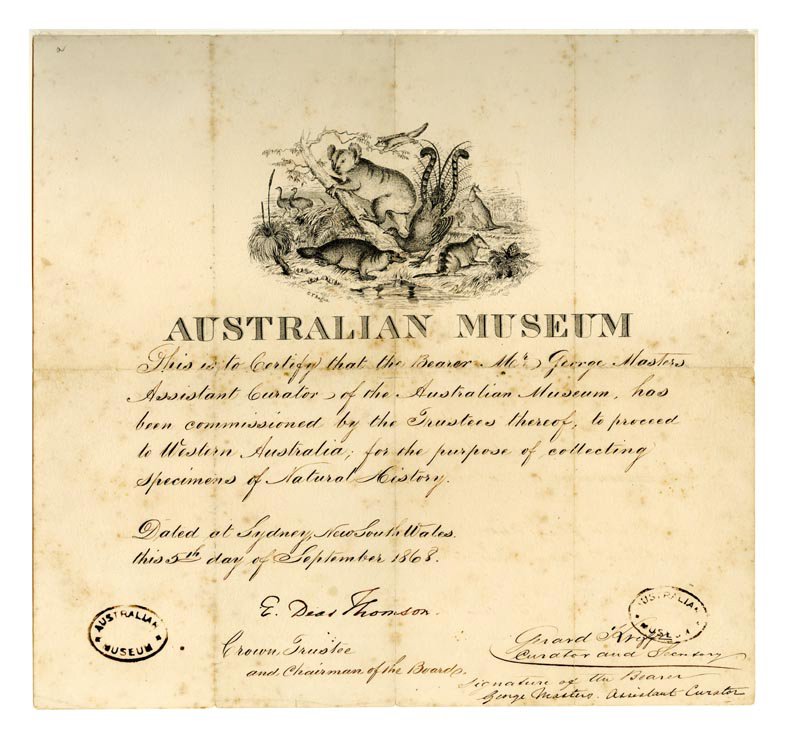 AUSTRALIAN MUSEUM
This is to Certify that the Bearer Mr. George Masters
Assistant Curator of the Australian Museum, has
been commissioned by the Trustees thereof, to proceed
to Western Australia, for the purpose of collecting
Specimens of Natural History.
Dated at Sydney, New South Wales.
this 5th day of September 1868.
E. Deas Thomson.
Crown Trustee
and Chairman of the Board.
AUSTRALIAN
MUSEUM
AUSTRALIAN
MUSEUM
Gerard Krefft
Curator and Secretary
Signature of the Bearer
George Masters. Assistant Curator